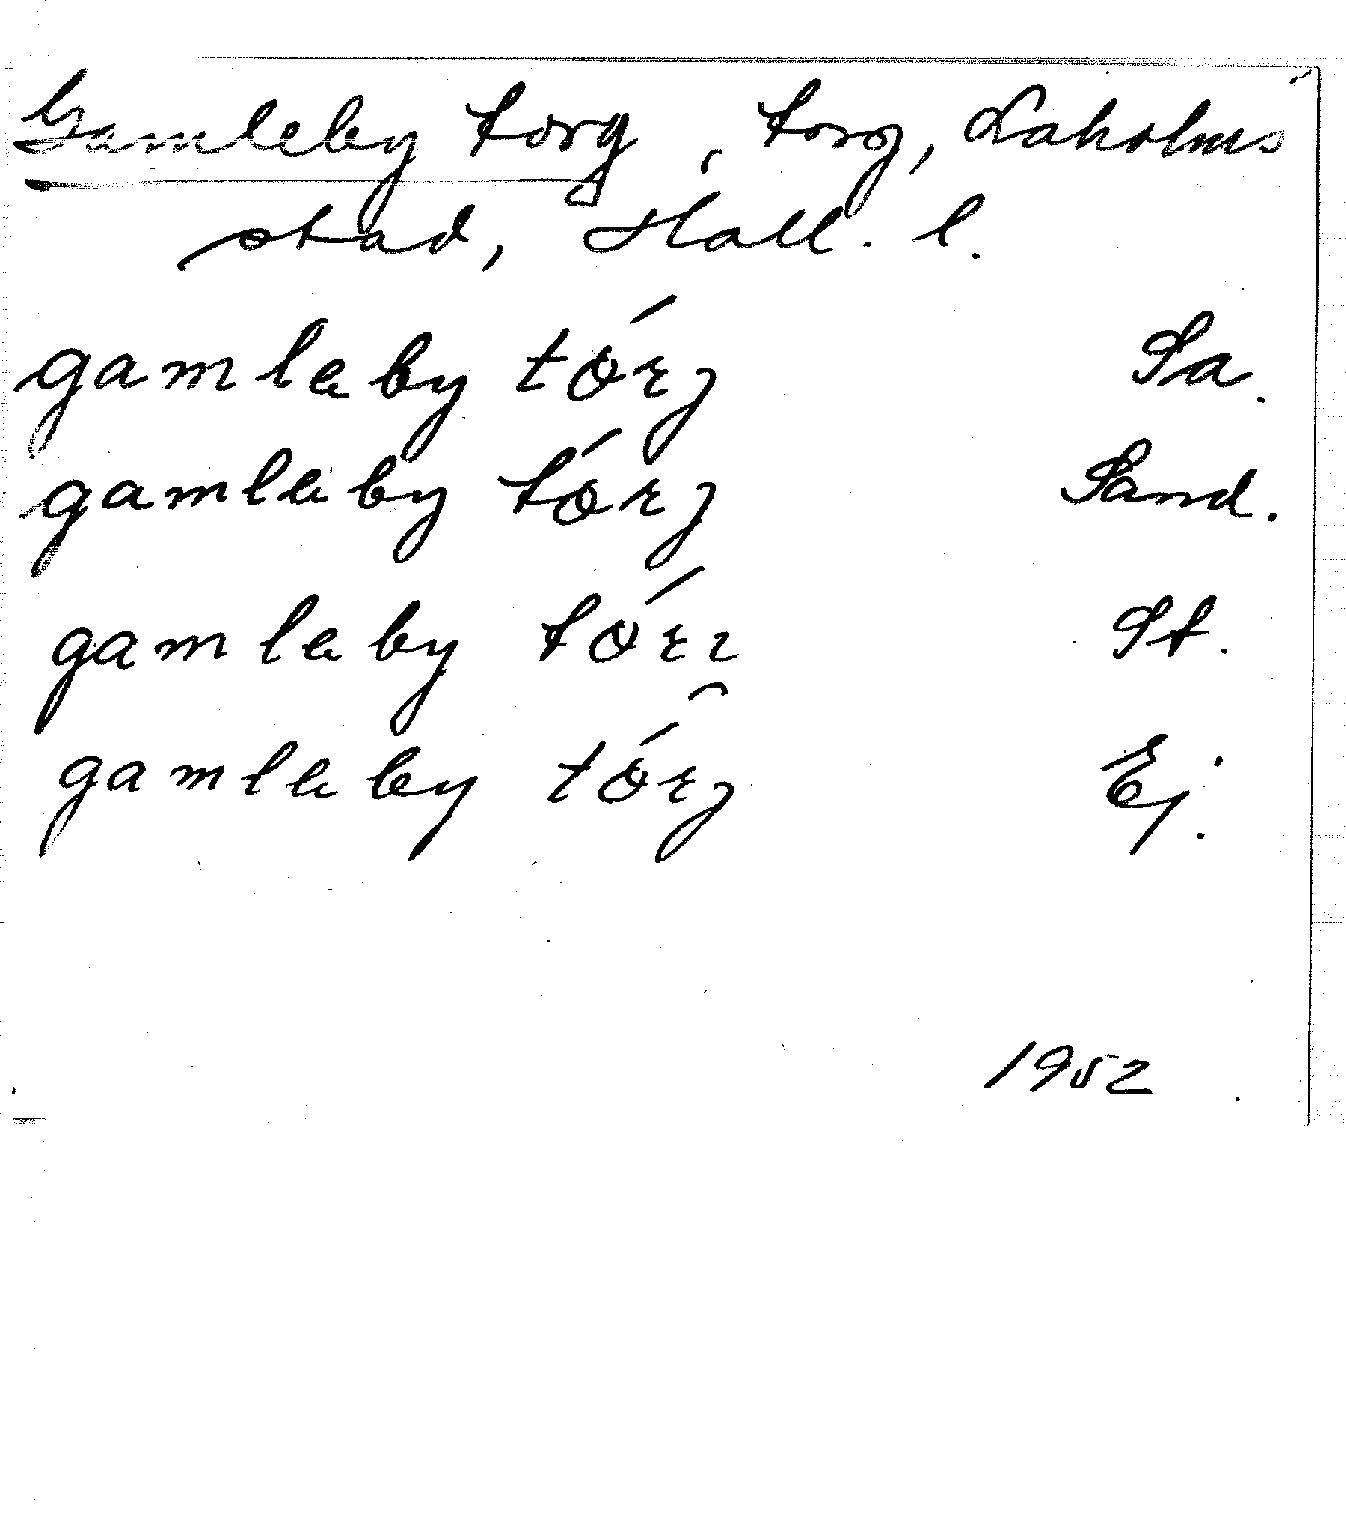 Gamleby torg, torg, Laholms
stad, Hall. l.
gamleby tórj Sa.
gamleby tórj Sand.
gamleby tórı St.
gamleby tórj Ej.
1952